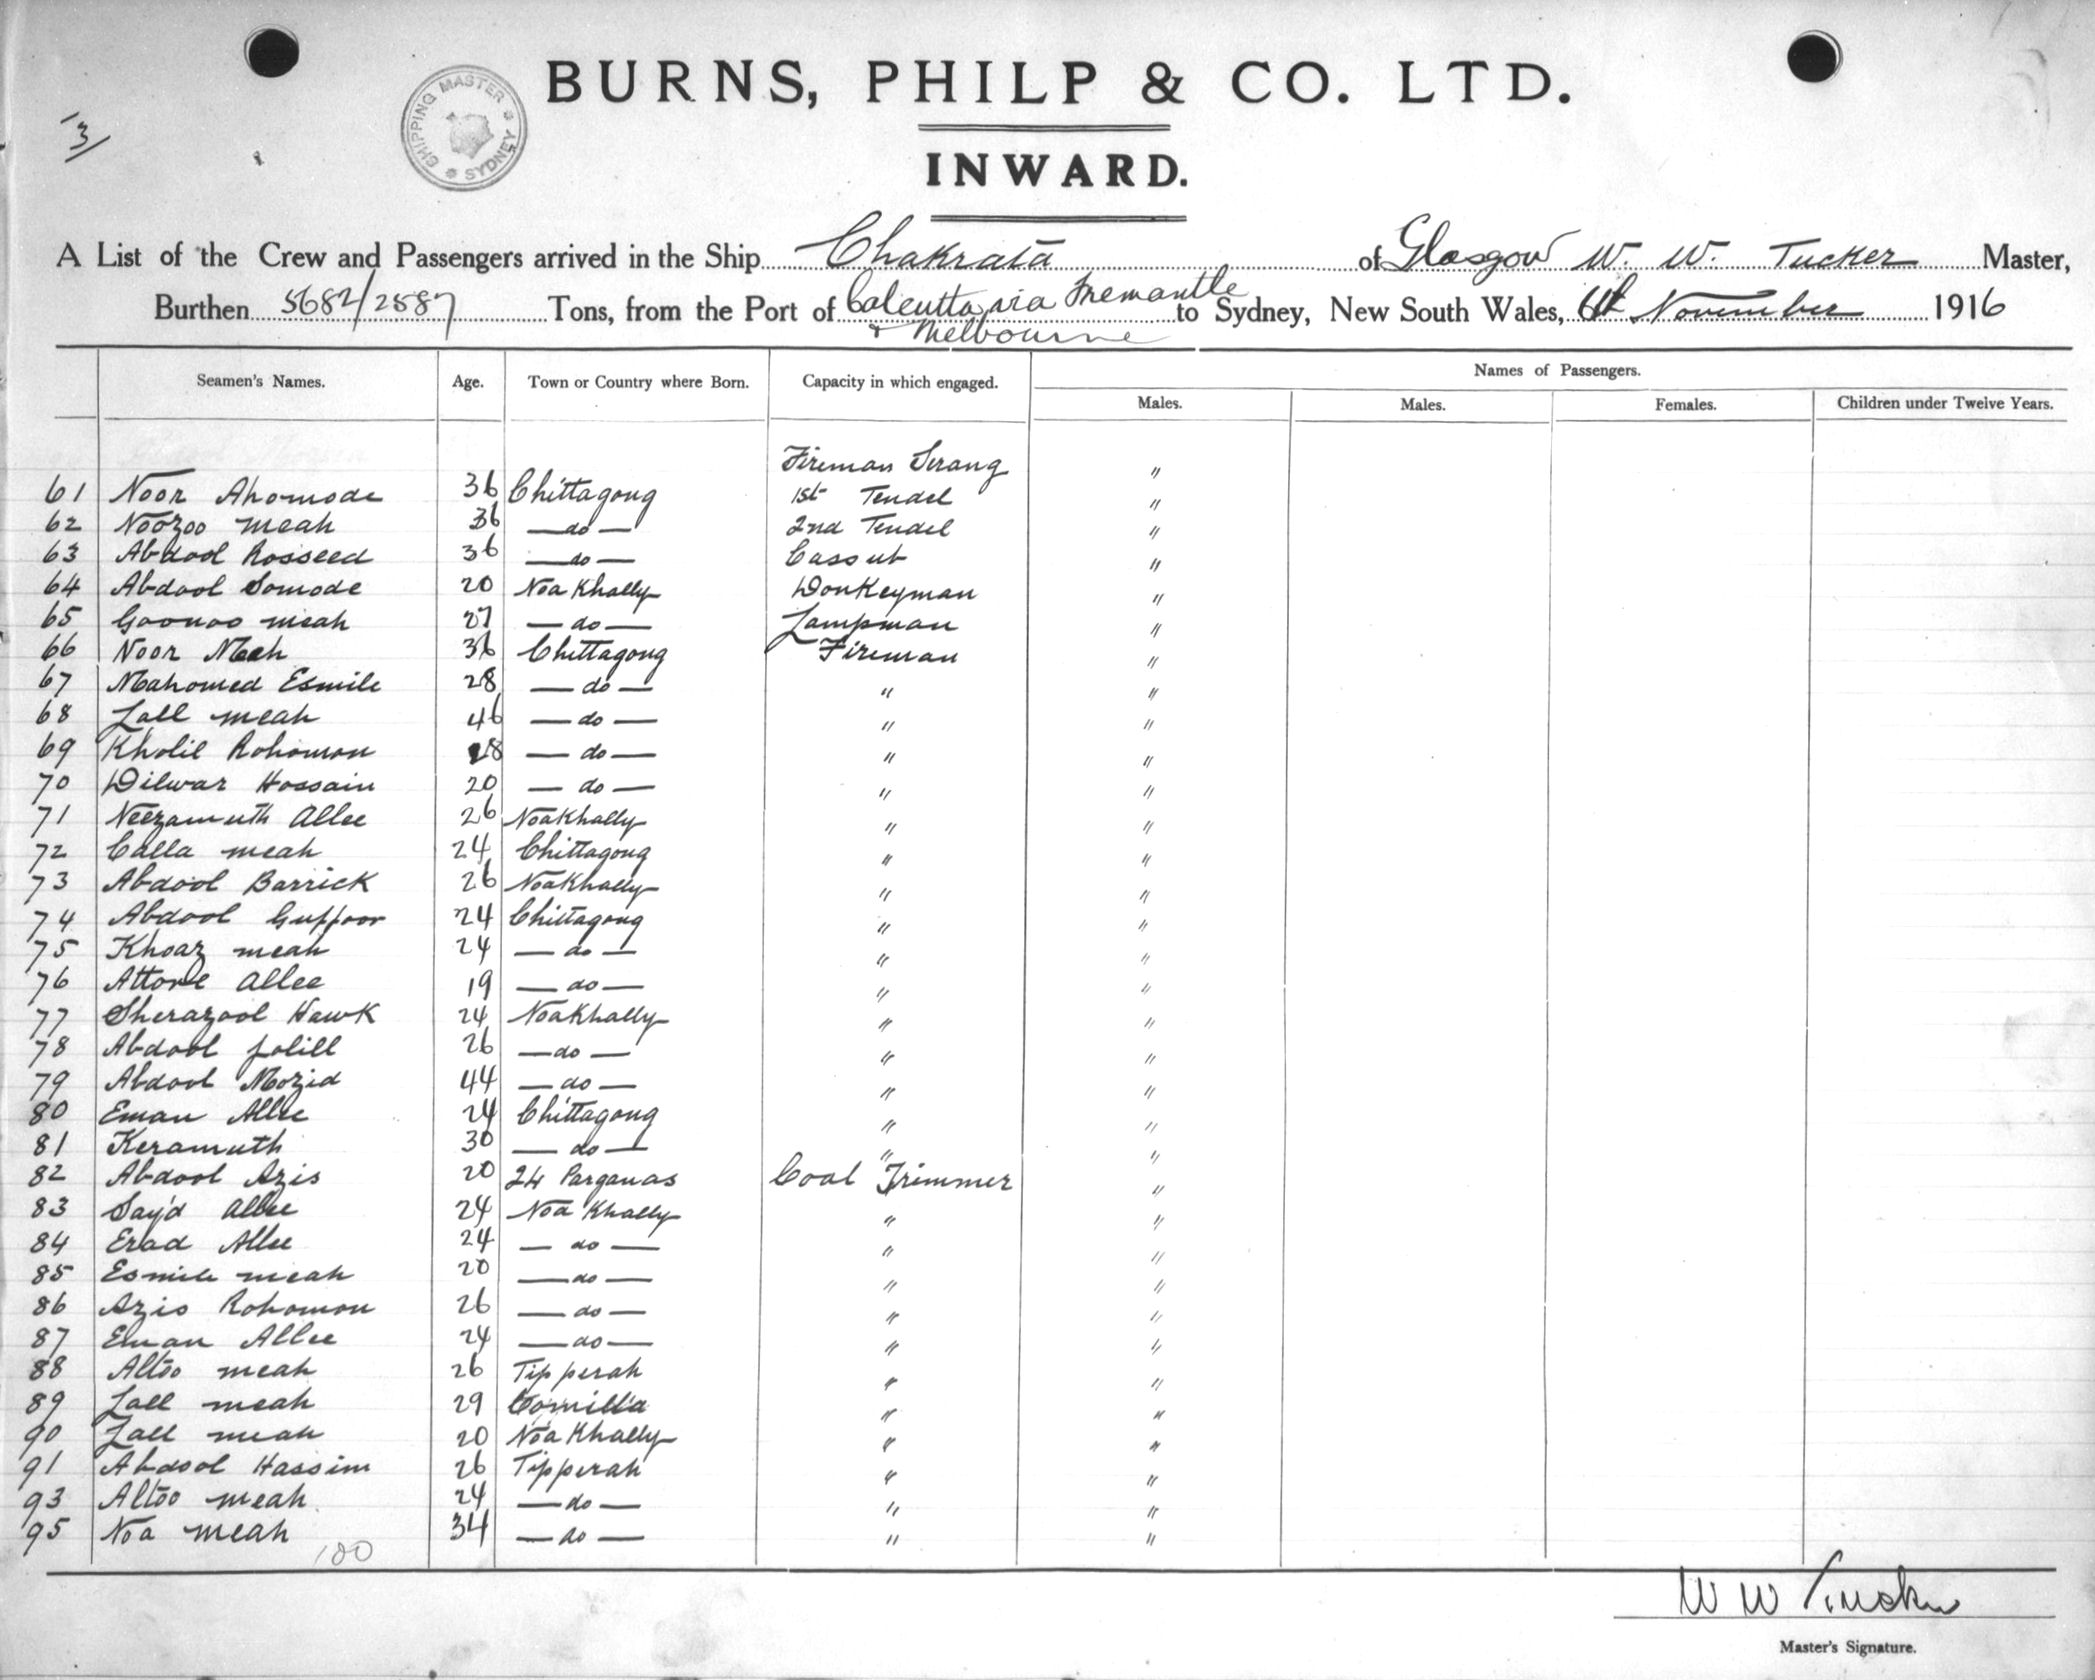 13/
SHIPPING MASTER * SYDNEY *
BURNS, PHILP & CO. LTD.
INWARD.
A List of the Crew and Passengers arrived in the Ship Chakrata of Glasgow W. W. Tucker Master,
Burthen 5682/2587 Tons, from the Port of Calcutta via Fremantle & Melbourne to Sydney, New South Wales, November 1916
Seamen's Names. Age. Town or Country where Born. Capacity in which engaged. Names of Passengers.
Males. Males. Females. Children under Twelve Years.
Fireman Serang "
61 Noor Ahomode 36 Chittagong 1st Tendel "
62 Noozoo meah 36 — do — 2nd Tendel "
63 Abdool Rosseed 36 — do — Cassub "
64 Abdool Somode 20 Noakhally Donkeyman "
65 Goonoo meah 27 — do — Lampman "
66 Noor Meah 36 Chittagong Fireman "
67 Mahomed Esmile 28 — do — " "
68 Lall meah 46 — do — " "
69 Kholil Rohomon 28 — do — " "
70 Dilwar Hossain 20 — do — " "
71 Neezamuth Allee 26 Noakhally " "
72 Calla meah 24 Chittagong " "
73 Abdool Barrick 26 Noakhally " "
74 Abdool Guffoor 24 Chittagong " "
75 Khoaz meah 24 — do — " "
76 Attore Allee 19 — do — " "
77 Sherazool Hawk 24 Noakhally " "
78 Abdool Jolill 26 — do — " "
79 Abdool Mozid 44 — do — " "
80 Eman Allee 24 Chittagong " "
81 Keramuth 30 — do — " "
82 Abdool Azis 20 24 Parganas Coal Trimmer "
83 Say'd Allee 24 Noa Khally " "
84 Erad Allee 24 — do — " "
85 Esmile meah 20 — do — " "
86 Azis Rohomon 26 — do — " "
87 Eman Allee 24 — do — " "
88 Altoo meah 26 Tipperah " "
89 Lall meah 29 Comilla " "
90 Lall meah 20 Noa Khally " "
91 Abdool Hassim 26 Tipperah " "
93 Altoo meah 24 — do — " "
95 Noa meah 34 — do — " "
100
W W Tucker
Master's Signature.